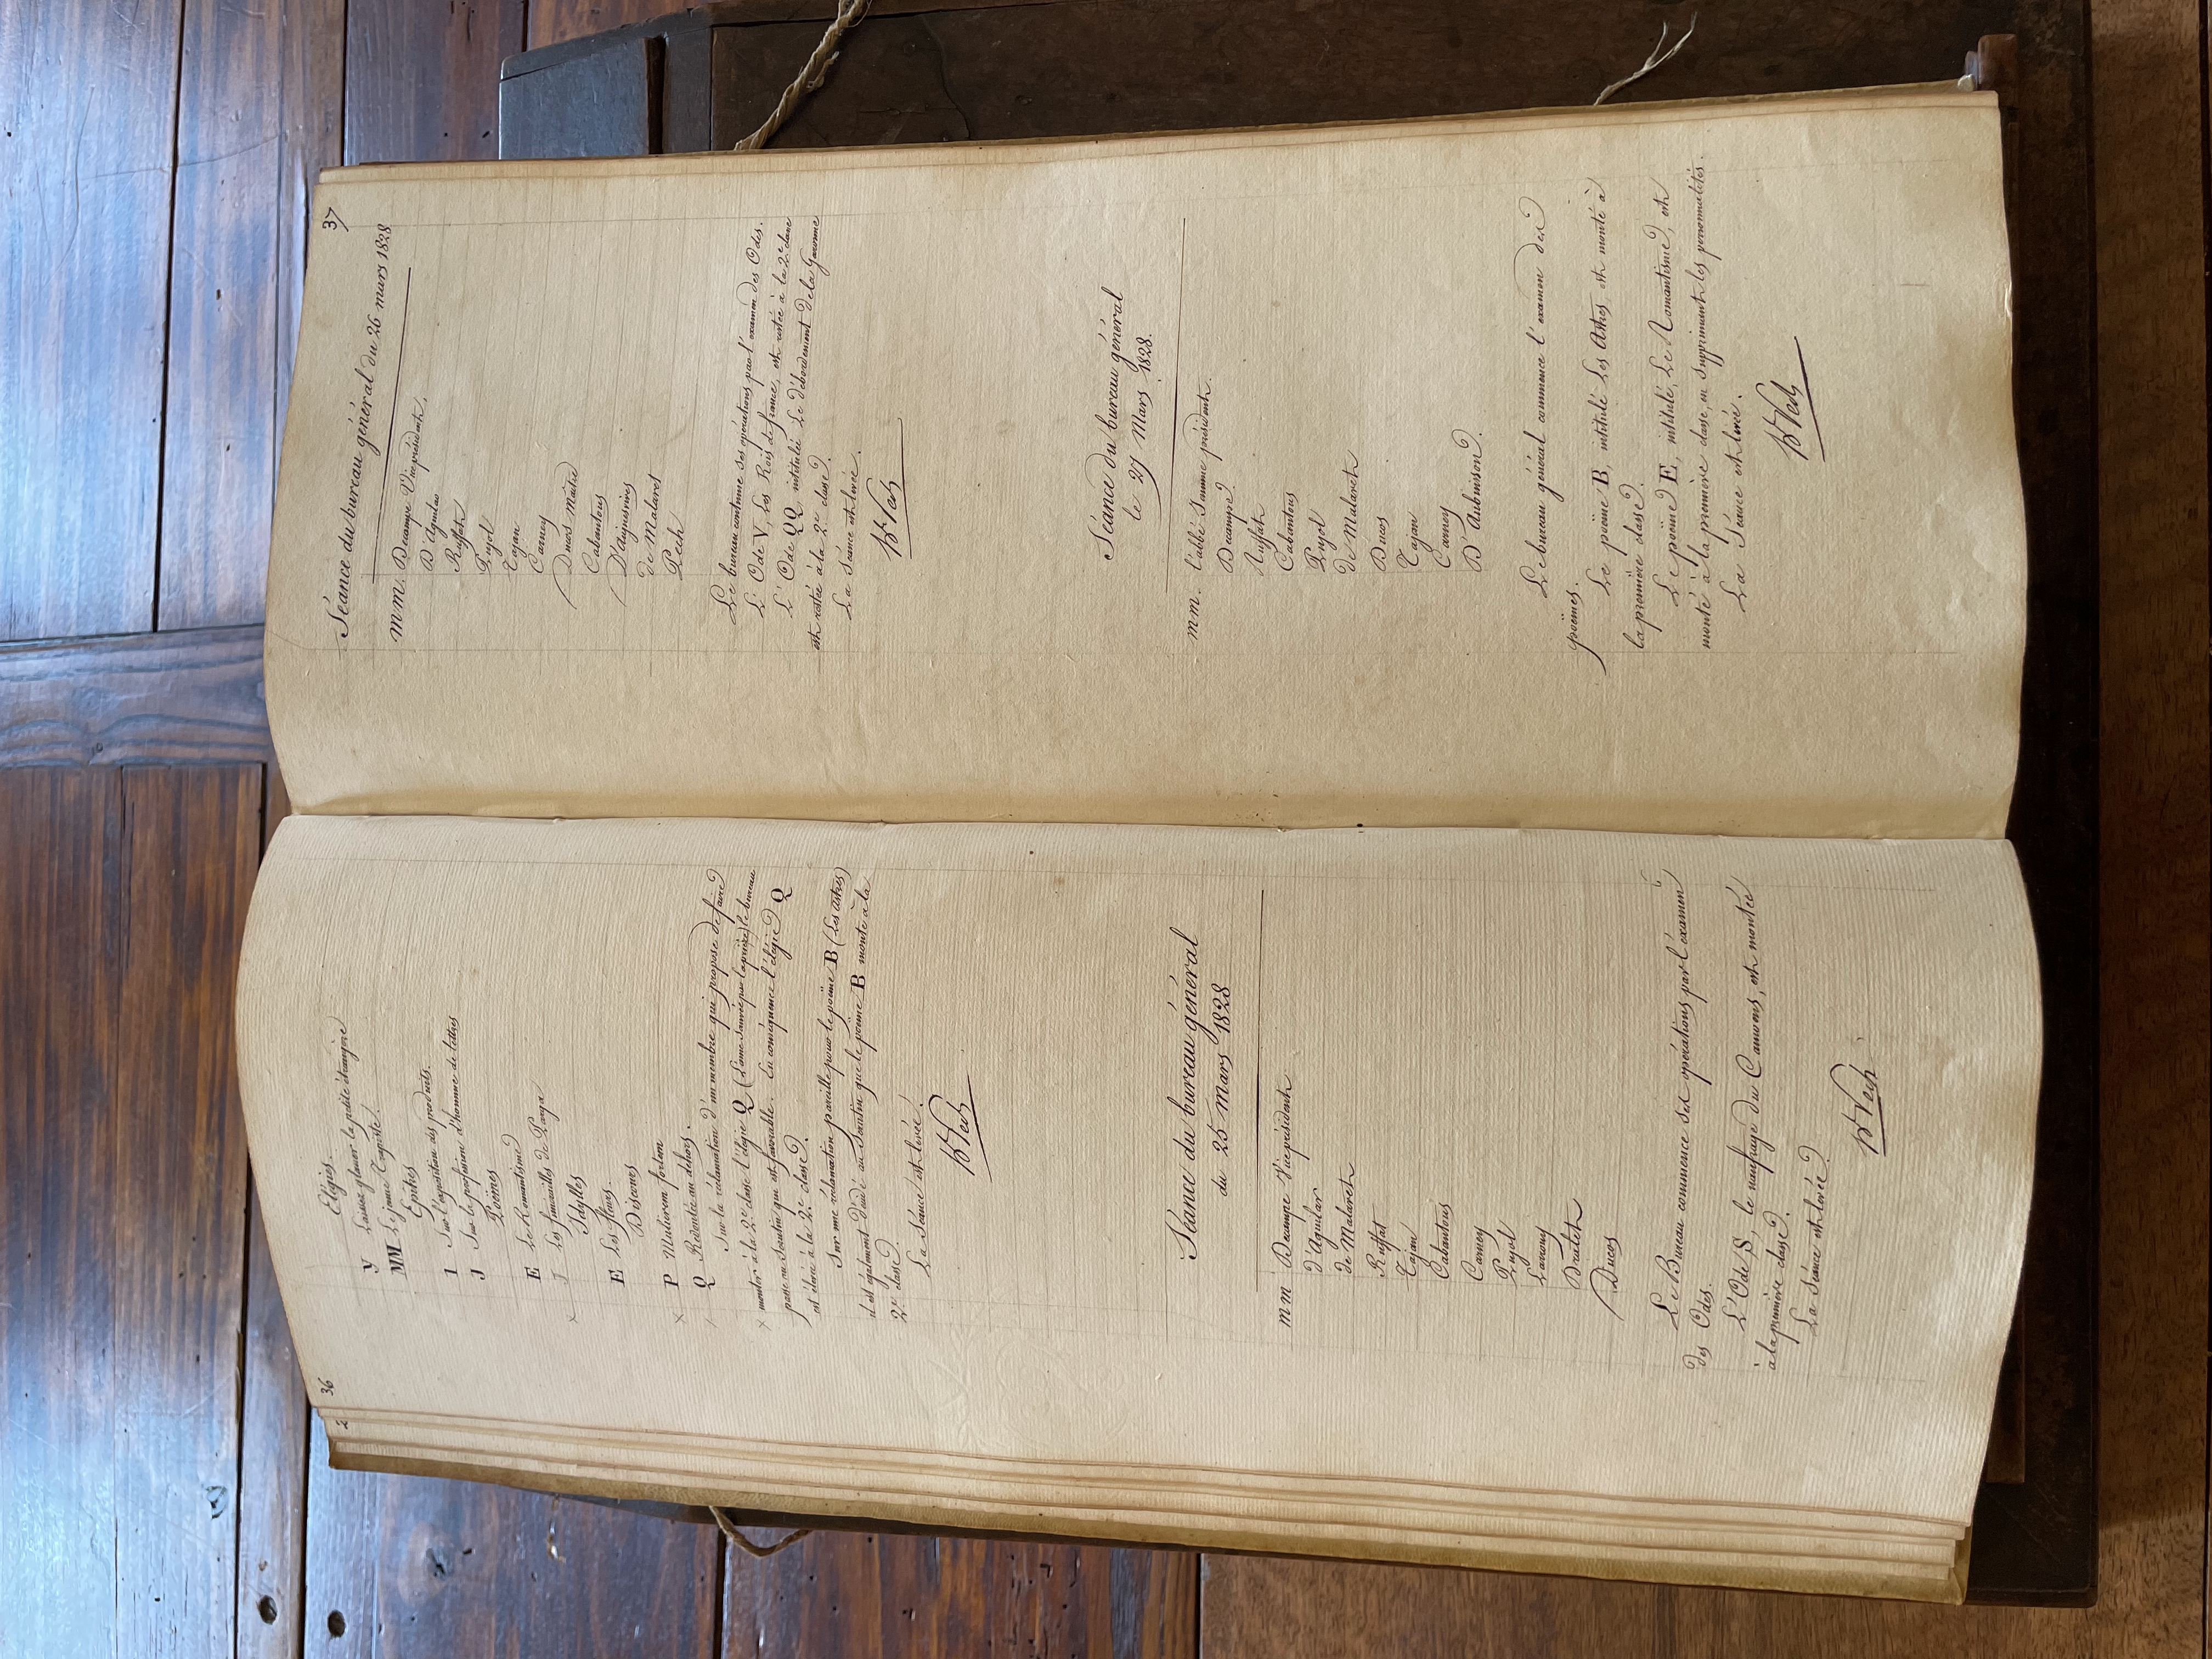 36
Elégies.
Y Laissez glaner la petite étrangère
MM Le jeune Trapiste.
Epitres
I Sur l'exposition des produits.
J Sur la profession d'homme de lettres
Poëmes
E Le Romantisme
x J Les fiancailles de Parga
Idylles
E Les fleurs.
Discours
x P Mulierem fortem
Q Redoutée au dehors.
Sur la réclamation d'un membre qui propose de faire
x monter à la 2e classe l'élégie Q (L'ame sauvée par la prière) le bureau
passe au scrutin qui est favorable. En conséquence l'élégie Q
est élevée à la 2e classe.
Sur une réclamation pareille pour le poëme B (Les Astres)
il est également décidé au scrutin que le poëme B monte à la
2e classe.
La Séance est levée.
Séance du bureau général
du 25 mars 1828
mm Decampe Vice président
d'Aguilar
de Malaret
Ruffat
Tajan
Cabantous
Carney
Pujol
Ducos
Le Bureau commence ses opérations par l'éxamen
des Odes.
L'Ode S, le naufrage du Camoens, est montée
à la première classe.
La Séance est levée.
37
Séance du bureau général du 26 mars 1828
m m. Decampe Vice président.
D'Aguilar
Ruffat
Pujol
Tajan
Carney
Ducos maître
Cabantous
D'ayguesvives
de Malaret
Pech
Le bureau continue ses opérations par l'examen des Odes.
L'Ode V, Les Rois de france, est restée à la 2e classe
L'Ode QQ intitulée Le débordement de la Garonne
est restée à la 2e classe.
La Séance est levée.
Séance du bureau général
le 27 Mars 1828.
m m. l'abbé Jamme président.
Decampe
Ruffat
Cabantous
Pujol
de Malaret
Ducos
Tajan
Carney
D'Aubuisson
Le bureau général commence l'examen des
poëmes.
Le poëme B, intitulé Les Astres, est monté à
la première classe.
Le poëme E, intitulé, Le Romantisme, est
monté à la première classe, en supprimant les personnalités.
La Séance est levée.